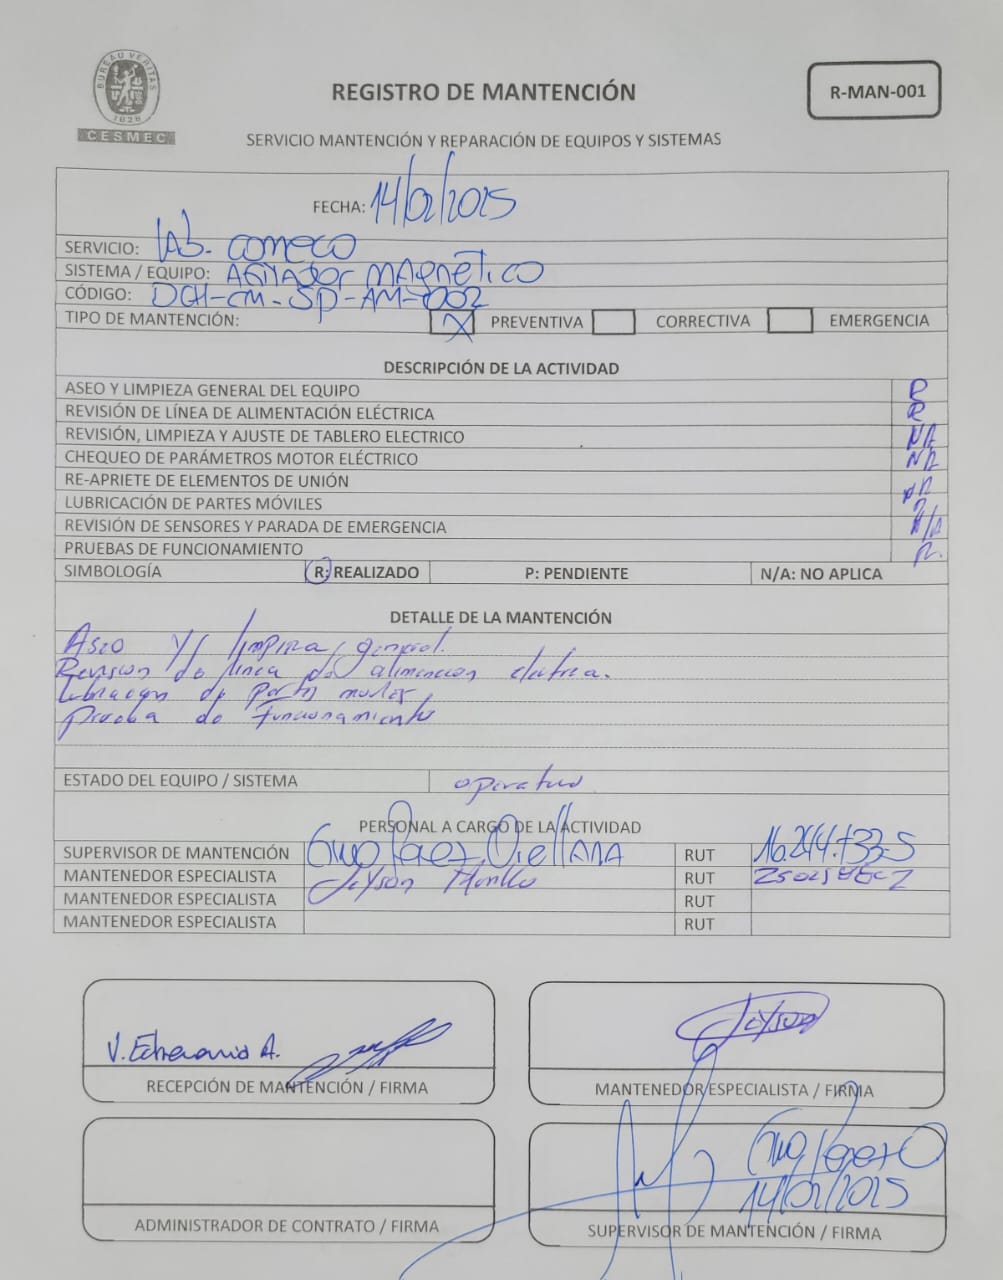 BUREAU VERITAS
1828
CESMEC
REGISTRO DE MANTENCIÓN
R-MAN-001
SERVICIO MANTENCIÓN Y REPARACIÓN DE EQUIPOS Y SISTEMAS
FECHA: 14/02/2025
SERVICIO: LAB. COMECO
SISTEMA / EQUIPO: AGITADOR MAGNÉTICO
CÓDIGO: DCH-CM-SP-AM-002
TIPO DE MANTENCIÓN: X PREVENTIVA CORRECTIVA EMERGENCIA
DESCRIPCIÓN DE LA ACTIVIDAD
ASEO Y LIMPIEZA GENERAL DEL EQUIPO R
REVISIÓN DE LÍNEA DE ALIMENTACIÓN ELÉCTRICA R
REVISIÓN, LIMPIEZA Y AJUSTE DE TABLERO ELECTRICO NA
CHEQUEO DE PARÁMETROS MOTOR ELÉCTRICO NA
RE-APRIETE DE ELEMENTOS DE UNIÓN
LUBRICACIÓN DE PARTES MÓVILES
REVISIÓN DE SENSORES Y PARADA DE EMERGENCIA N/A
PRUEBAS DE FUNCIONAMIENTO R.
SIMBOLOGÍA R: REALIZADO P: PENDIENTE N/A: NO APLICA
DETALLE DE LA MANTENCIÓN
Aseo y limpieza general.
Revision de linea de alimentacion electrica.
Lubricacion de partes moviles
Prueba de Funcionamiento
ESTADO DEL EQUIPO / SISTEMA operativo
PERSONAL A CARGO DE LA ACTIVIDAD
SUPERVISOR DE MANTENCIÓN Páez Orellana RUT 16.244.733-5
MANTENEDOR ESPECIALISTA Jeyson RUT
MANTENEDOR ESPECIALISTA RUT
MANTENEDOR ESPECIALISTA RUT
V. Echeverria A.
RECEPCIÓN DE MANTENCIÓN / FIRMA
Jeyson
MANTENEDOR ESPECIALISTA / FIRMA
14/02/2025
ADMINISTRADOR DE CONTRATO / FIRMA
SUPERVISOR DE MANTENCIÓN / FIRMA